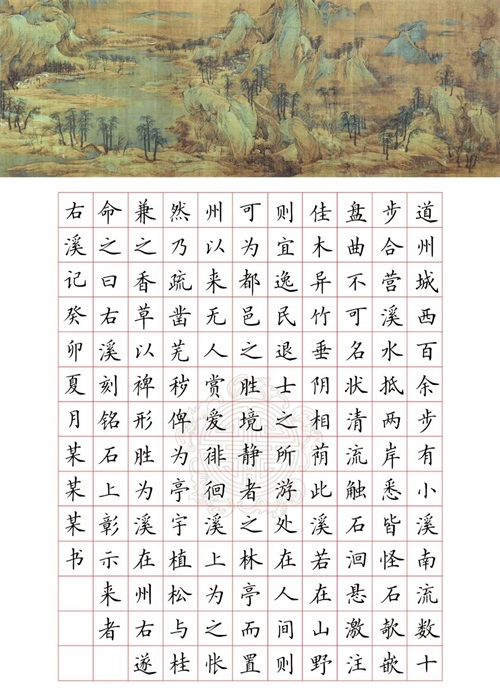 道州城西百余步有小溪南流数十
步合营溪水抵两岸悉皆怪石欹嵌
盘曲不可名状清流触石洄悬激注
佳木异竹垂阴相荫此溪若在山野
则宜逸民退士之所游处在人间则
可为都邑之胜境静者之林亭而置
州以来无人赏爱徘徊溪上为之怅
然乃疏凿芜秽俾为亭宇植松与桂
兼之香草以裨形胜为溪在州右遂
命之曰右溪刻铭石上彰示来者
右溪记癸卯夏月某某某书